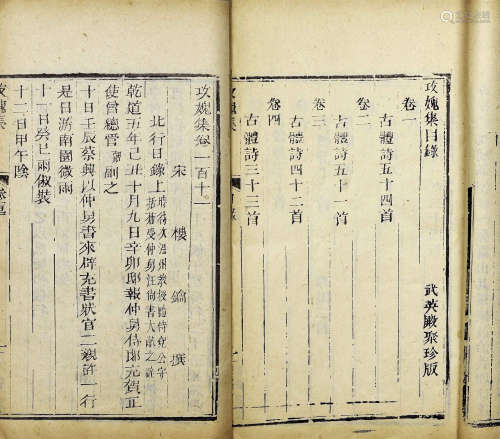 攻媿集目錄 武英殿聚珍版
卷一
古體詩五十四首
卷二
古體詩五十一首
卷三
古體詩四十二首
卷四
古體詩三十三首
攻媿集
攻媿集卷一百十一
宋 樓 鑰 撰
北行日錄上
時待次溫州教授隨侍兗公守
括蒼受仲舅汪尚書大猷之辟
乾道五年己丑十月九日辛卯邸報仲舅侍郎充賀正
使曾總管覿副之
十日壬辰蔡興以仲舅書來辟充書狀官二親許一行
是日游南園微雨
十一日癸巳雨俶裝
十二日甲午陰
攻媿集